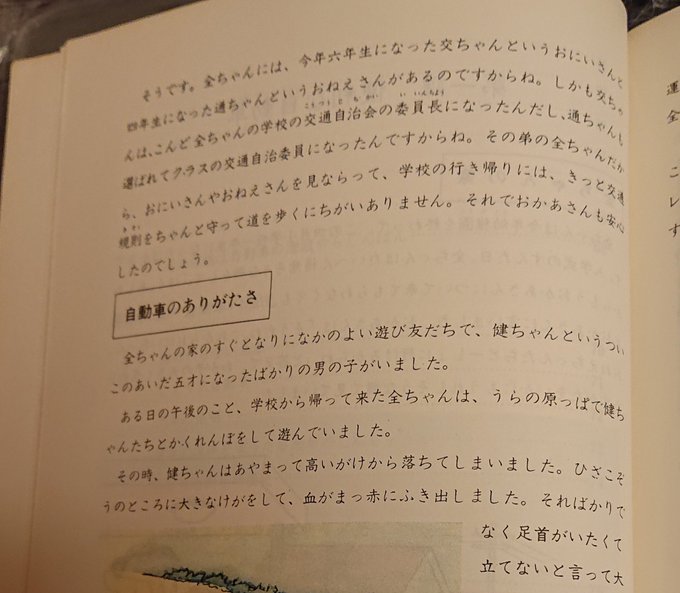 そうです。全ちゃんには、今年六年生になった交ちゃんというおにいさんと
四年生になった通ちゃんというおねえさんがあるのですからね。しかも交ちゃ
んは、こんど全ちゃんの学校の交通自治会の委員長になったんだし、通ちゃんも
選ばれてクラスの交通自治委員になったんですからね。その弟の全ちゃんだか
ら、おにいさんやおねえさんを見ならって、学校の行き帰りには、きっと交通
規則をちゃんと守って道を歩くにちがいありません。それでおかあさんも安心
したのでしょう。
自動車のありがたさ
全ちゃんの家のすぐとなりになかのよい遊び友だちで、健ちゃんというつい
このあいだ五才になったばかりの男の子がいました。
ある日の午後のこと、学校から帰って来た全ちゃんは、うらの原っぱで健ち
ゃんたちとかくれんぼをして遊んでいました。
その時、健ちゃんはあやまって高いがけから落ちてしまいました。ひざこぞ
うのところに大きなけがをして、血がまっ赤にふき出しました。そればかりで
なく足首がいたくて
立てないと言って大
運
全
こ
レ
す